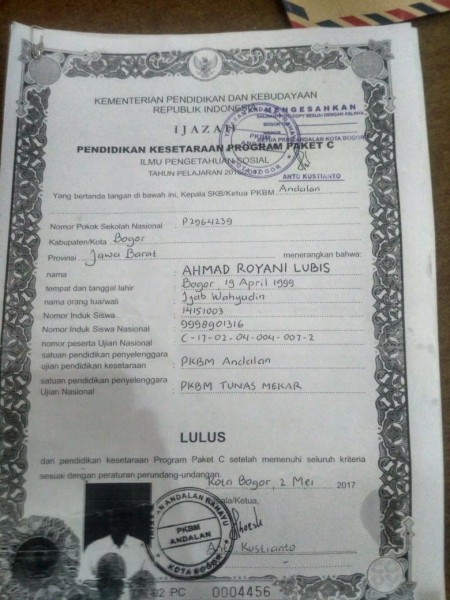 KEMENTERIAN PENDIDIKAN DAN KEBUDAYAAN
REPUBLIK INDONESIA
MENGESAHKAN
IJAZAH
PENDIDIKAN KESETARAAN PROGRAM PAKET C
KOTA BOGOR
ILMU PENGETAHUAN SOSIAL
TAHUN PELAJARAN
ANTO KUSTIANTO
PKBM
ANDALAN
KOTA BOGOR
Yang bertanda tangan di bawah ini, Kepala SKB/Ketua PKBM Andalan
Nomor Pokok Sekolah Nasional : P2964239
Kabupaten/Kota Bogor
Provinsi Jawa Barat menerangkan bahwa:
nama : AHMAD ROYANI LUBIS
tempat dan tanggal lahir : Bogor, 19 April 1999
nama orang tua/wali : Ijab Wahyudin
Nomor Induk Siswa : 14151003
Nomor Induk Siswa Nasional : 9998901316
nomor peserta Ujian Nasional : C-17-02-04-004-007-2
satuan pendidikan penyelenggara
ujian pendidikan kesetaraan : PKBM Andalan
satuan pendidikan penyelenggara
Ujian Nasional : PKBM TUNAS MEKAR
LULUS
dari pendidikan kesetaraan Program Paket C setelah memenuhi seluruh kriteria
sesuai dengan peraturan perundang-undangan.
Kota Bogor, 2 Mei 2017
Ketua,
ANDALAN RAHAYU
PKBM
ANDALAN
KOTA BOGOR
Anto Kustianto
PC 0004456